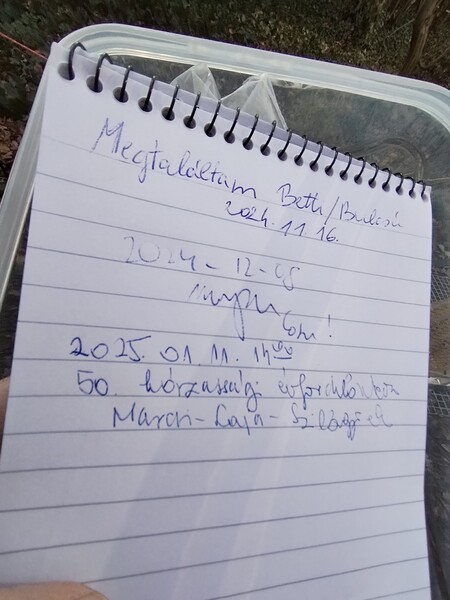 Megtaláltam Beth/Bulcsú
2024.11.16.
2024-12-05
2025. 01. 11. 14⁰⁰
50. házassági évfordulónkon
Marcsi-Laja-Szilágyi